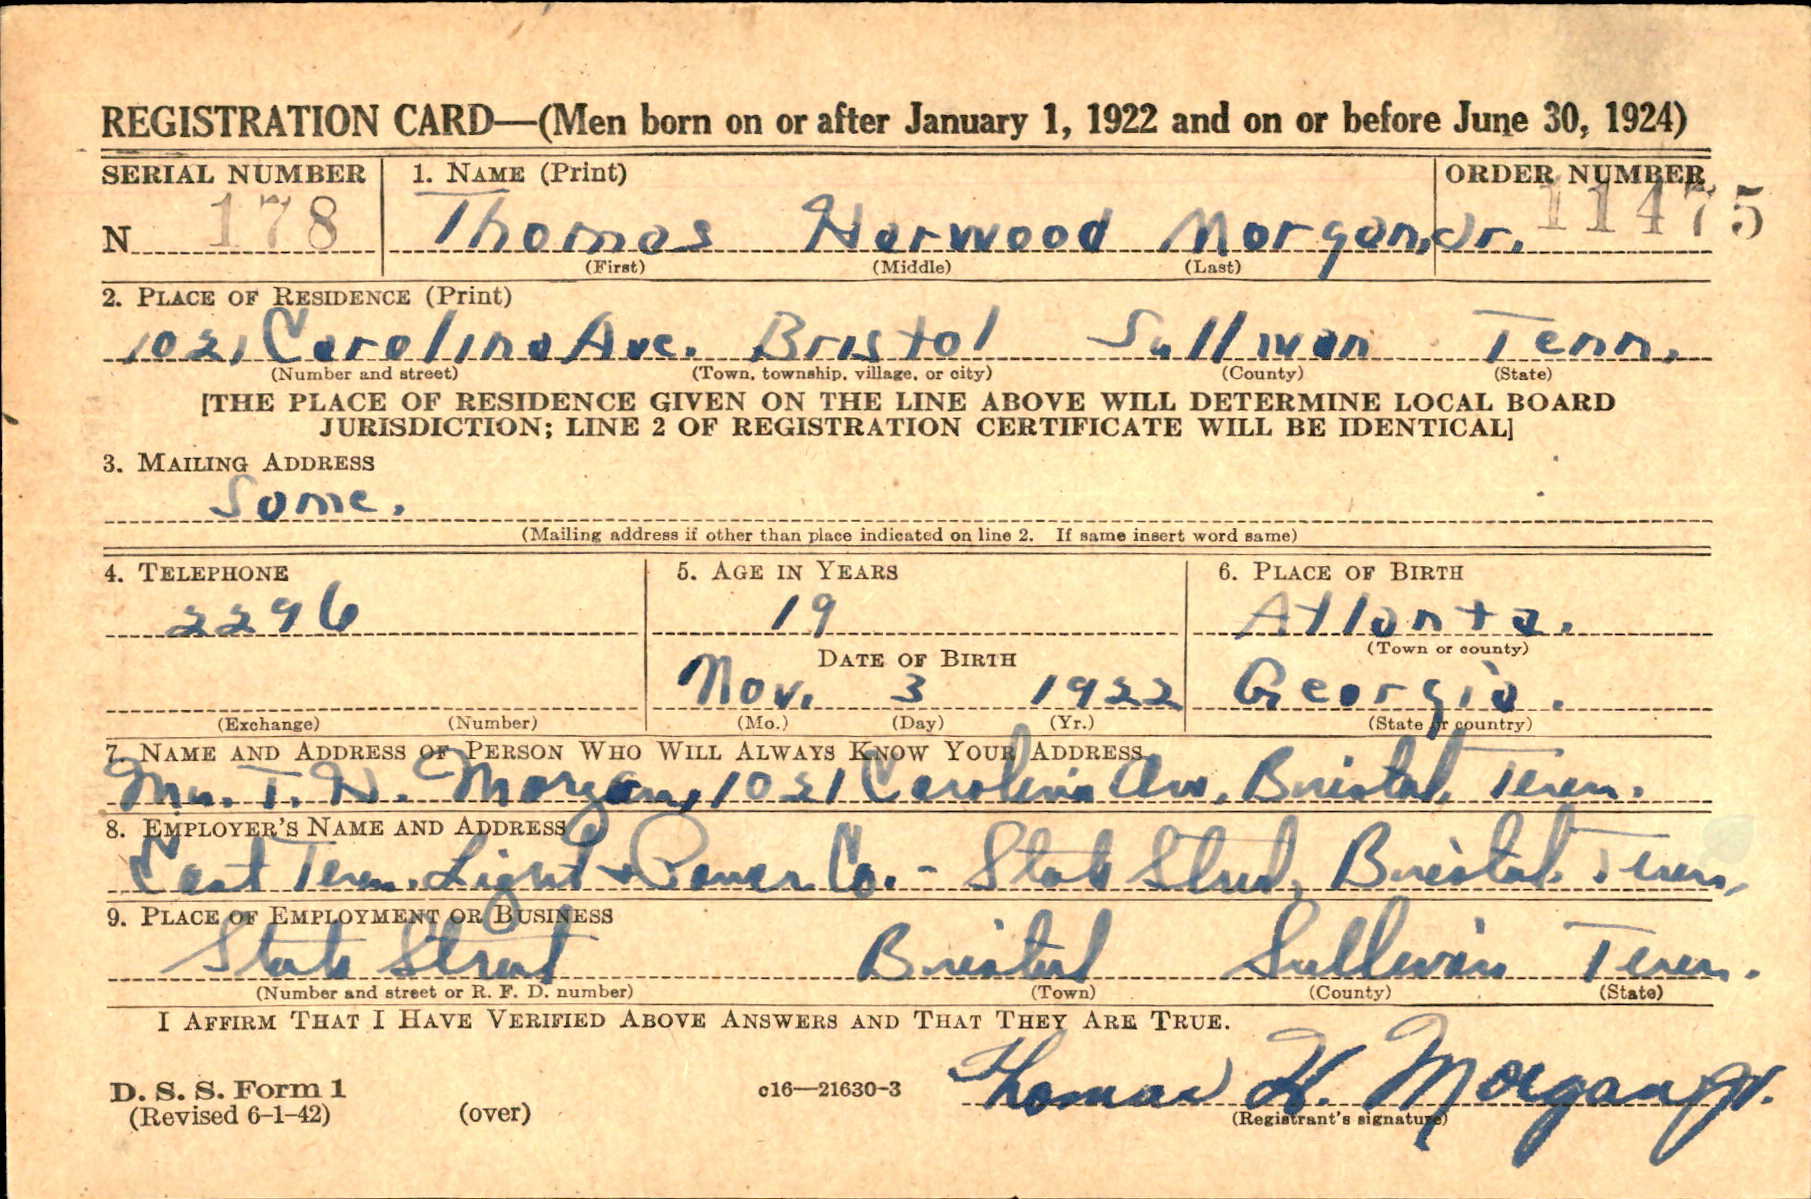 REGISTRATION CARD—(Men born on or after January 1, 1922 and on or before June 30, 1924)
SERIAL NUMBER 1. NAME (Print) ORDER NUMBER
N 178 Thomas Harwood Morgan, Jr. 11475
(First) (Middle) (Last)
2. PLACE OF RESIDENCE (Print)
1021 Carolina Ave. Bristol Sullivan Tenn.
(Number and street) (Town, township, village, or city) (County) (State)
[THE PLACE OF RESIDENCE GIVEN ON THE LINE ABOVE WILL DETERMINE LOCAL BOARD
JURISDICTION; LINE 2 OF REGISTRATION CERTIFICATE WILL BE IDENTICAL]
3. MAILING ADDRESS
Same.
(Mailing address if other than place indicated on line 2. If same insert word same)
4. TELEPHONE 5. AGE IN YEARS 6. PLACE OF BIRTH
2296 19 Atlanta.
DATE OF BIRTH (Town or county)
Nov. 3 1922 Georgia.
(Exchange) (Number) (Mo.) (Day) (Yr.) (State or country)
7. NAME AND ADDRESS OF PERSON WHO WILL ALWAYS KNOW YOUR ADDRESS
T. H. Morgan, 1021 Carolina Ave, Bristol, Tenn.
8. EMPLOYER'S NAME AND ADDRESS
East Tenn. Light & Power Co. - State Street, Bristol, Tenn,
9. PLACE OF EMPLOYMENT OR BUSINESS
State Street Bristol Sullivan Tenn.
(Number and street or R. F. D. number) (Town) (County) (State)
I AFFIRM THAT I HAVE VERIFIED ABOVE ANSWERS AND THAT THEY ARE TRUE.
Thomas H. Morgan Jr.
D. S. S. Form 1 c16—21630-3
(Revised 6-1-42) (over) (Registrant's signature)